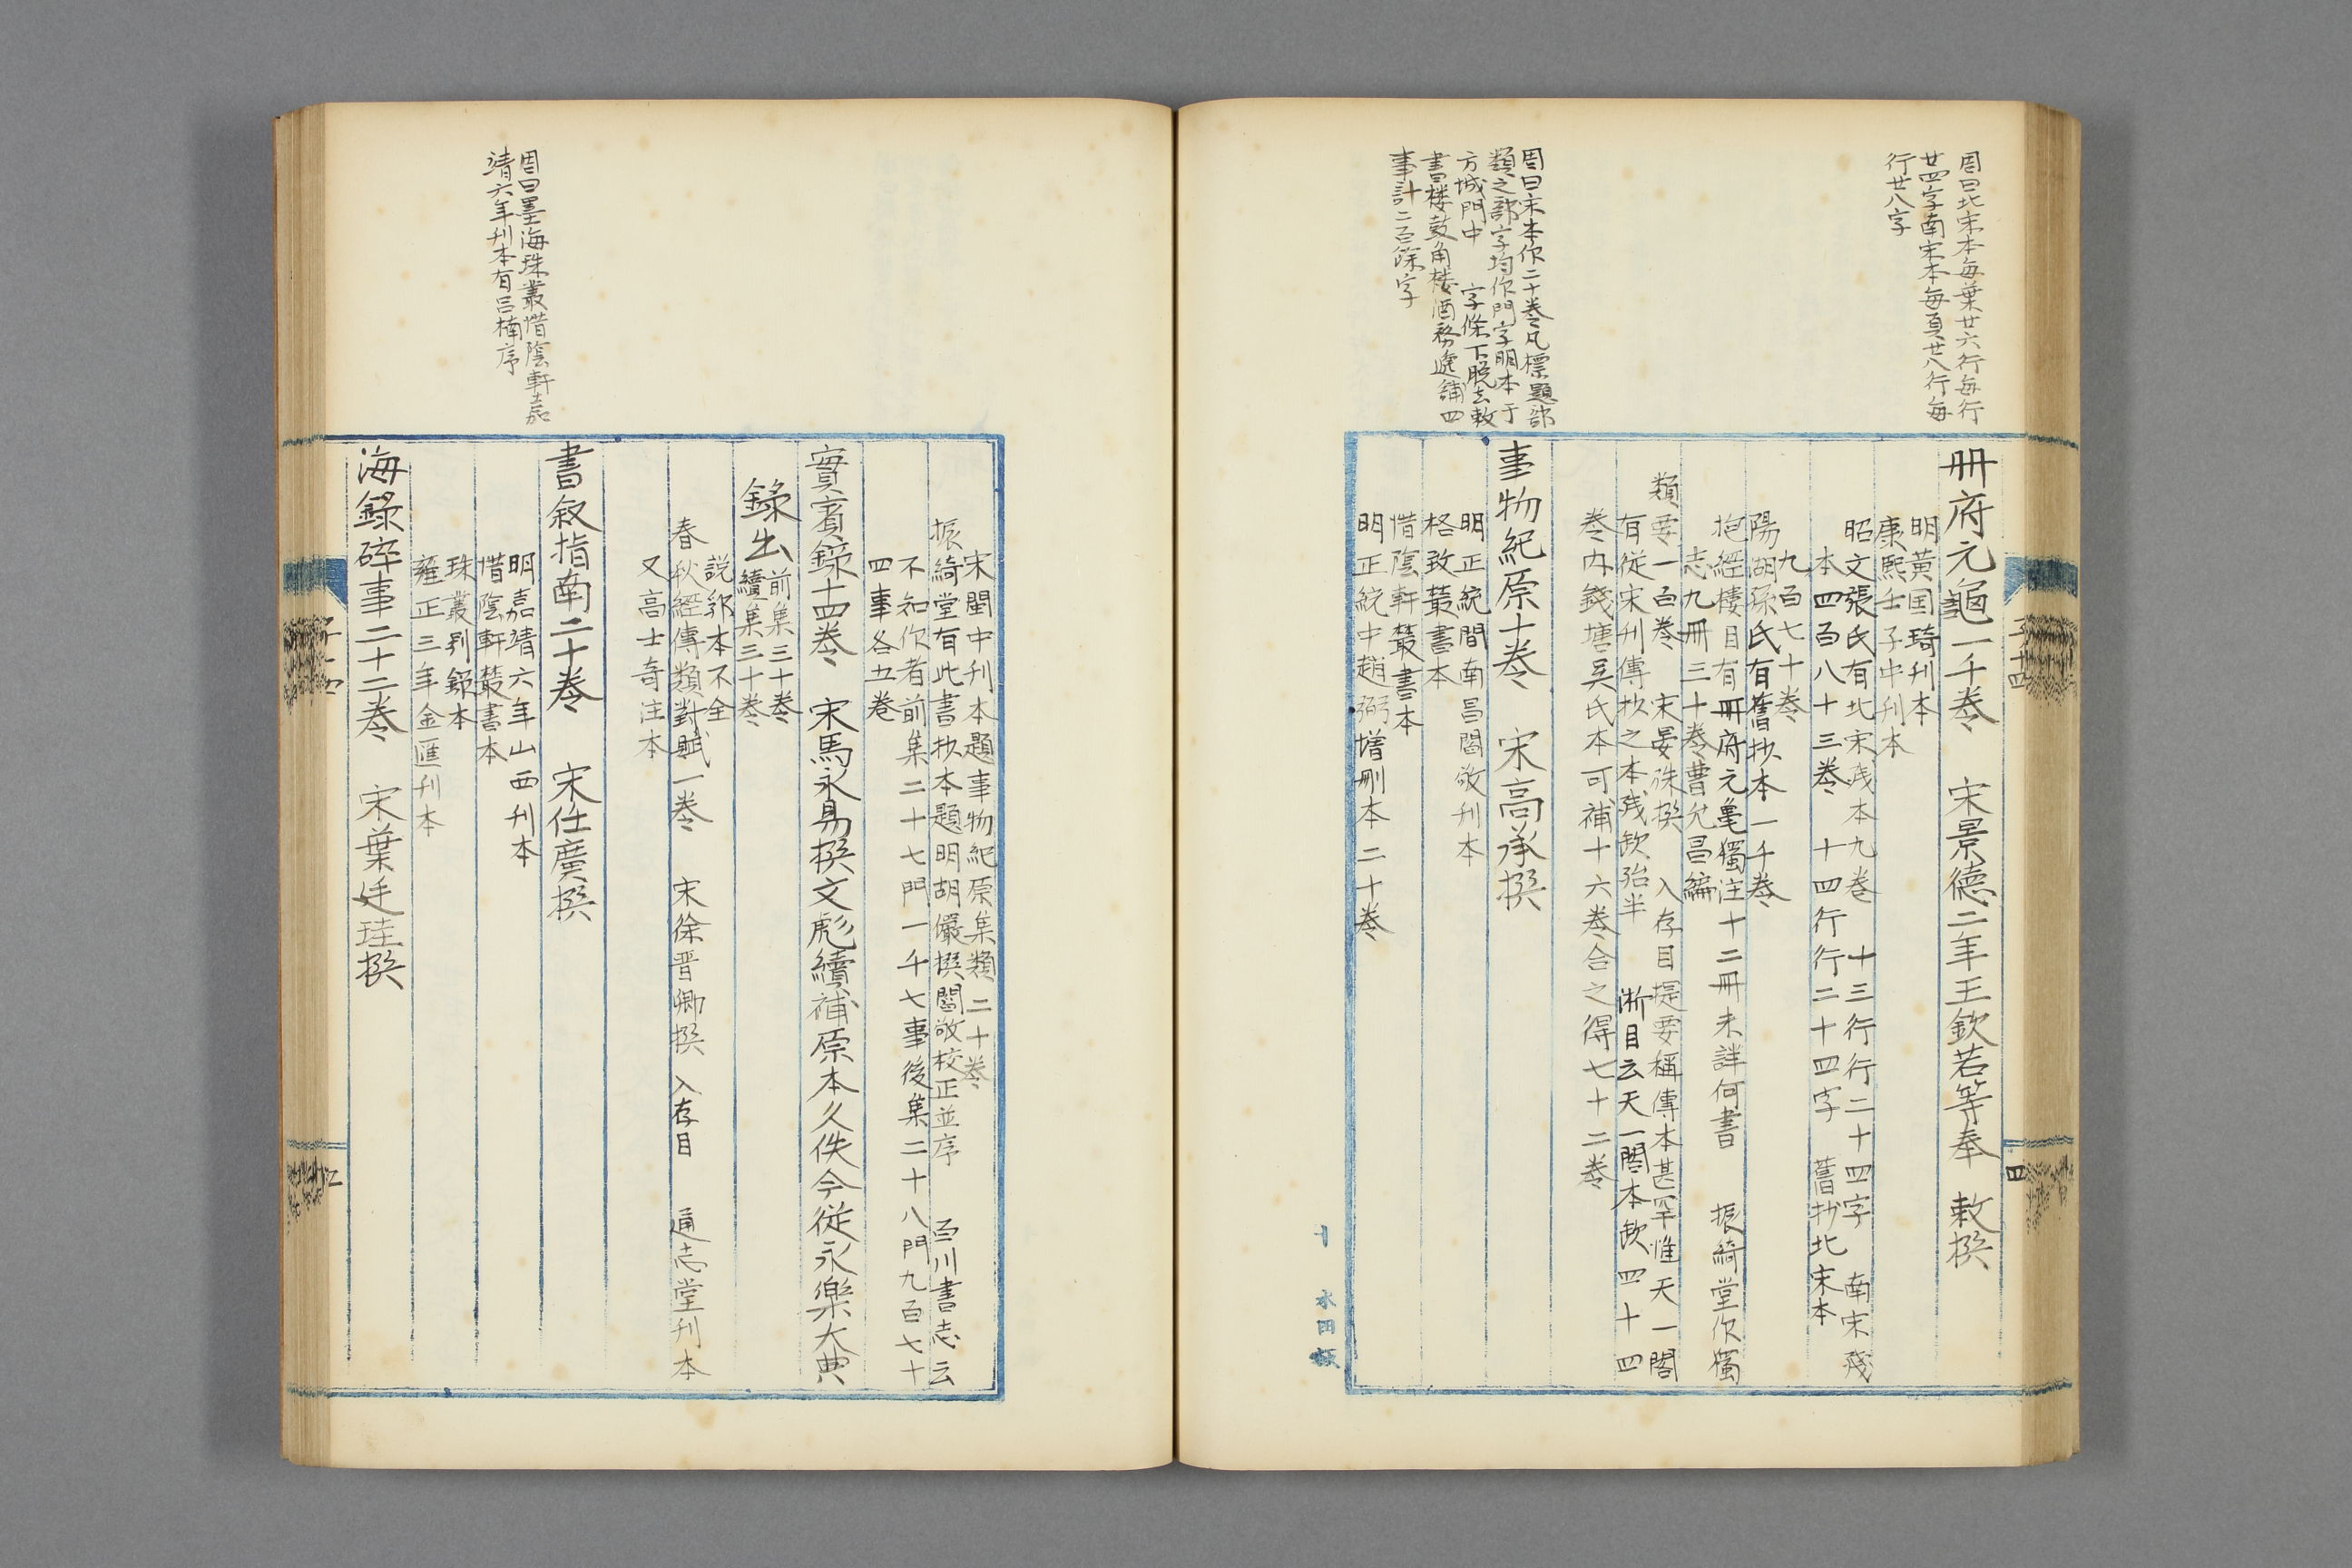 周曰北宋本每葉廿六行每行
廿四字南宋本每頁廿八行每
行廿八字
冊府元龜一千卷　宋景德二年王欽若等奉　敕撰
明黃国琦刊本
康熙壬子中刊本
昭文張氏有北宋残本九卷　十三行行二十四字　南宋殘
本四百八十三卷　十四行行二十四字　舊抄北宋本
九百七十卷
陽湖孫氏有舊抄本一千卷
抱經樓目有冊府元龜獨注十二冊未詳何書　振綺堂作獨
志九冊三十卷曹允昌編
類要一百卷　宋晏殊撰　入存目提要稱傳本甚罕惟天一閣
有從宋刊傳抄之本残欽殆半　浙目云天一閣本欽四十四
卷内錢塘吴氏本可補十六卷合之得七十二卷
周曰宋本作二十卷凡標題部
類之部字均作門字明本于
方城門中　字條下脱去敕
書楼鼓角楼酒務遞鋪四
事計二百餘字
事物紀原十卷　宋高承撰
明正統間南昌閻敬刊本
格致叢書本
惜陰軒叢書本
明正統中趙弼增刪本二十卷
子十四
四
宋閩中刊本題事物紀原集類二十卷
振綺堂有此書抄本題明胡儼撰閻敬校正並序　百川書志云
不知作者前集二十七門一千七事後集二十八門九百七十
四事各五卷
實賓錄十四卷　宋馬永易撰文彪續補原本久佚今從永樂大典
錄出前集三十卷
續集三十卷
説郛本不全
春秋經傳類對賦一卷　宋徐晋卿撰　入存目　通志堂刊本
又高士奇注本
周曰墨海珠叢惜陰軒嘉
靖六年刊本有呂楠序
書敘指南二十卷　宋任廣撰
明嘉靖六年山西刊本
惜陰軒叢書本
珠叢别錄本
雍正三年金匯刊本
海錄碎事二十二卷　宋葉廷珪撰